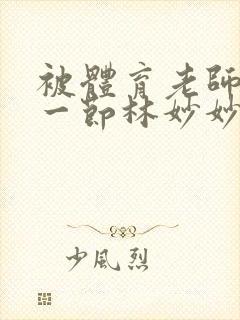 被體育老師
一節林妙妙
少風烈